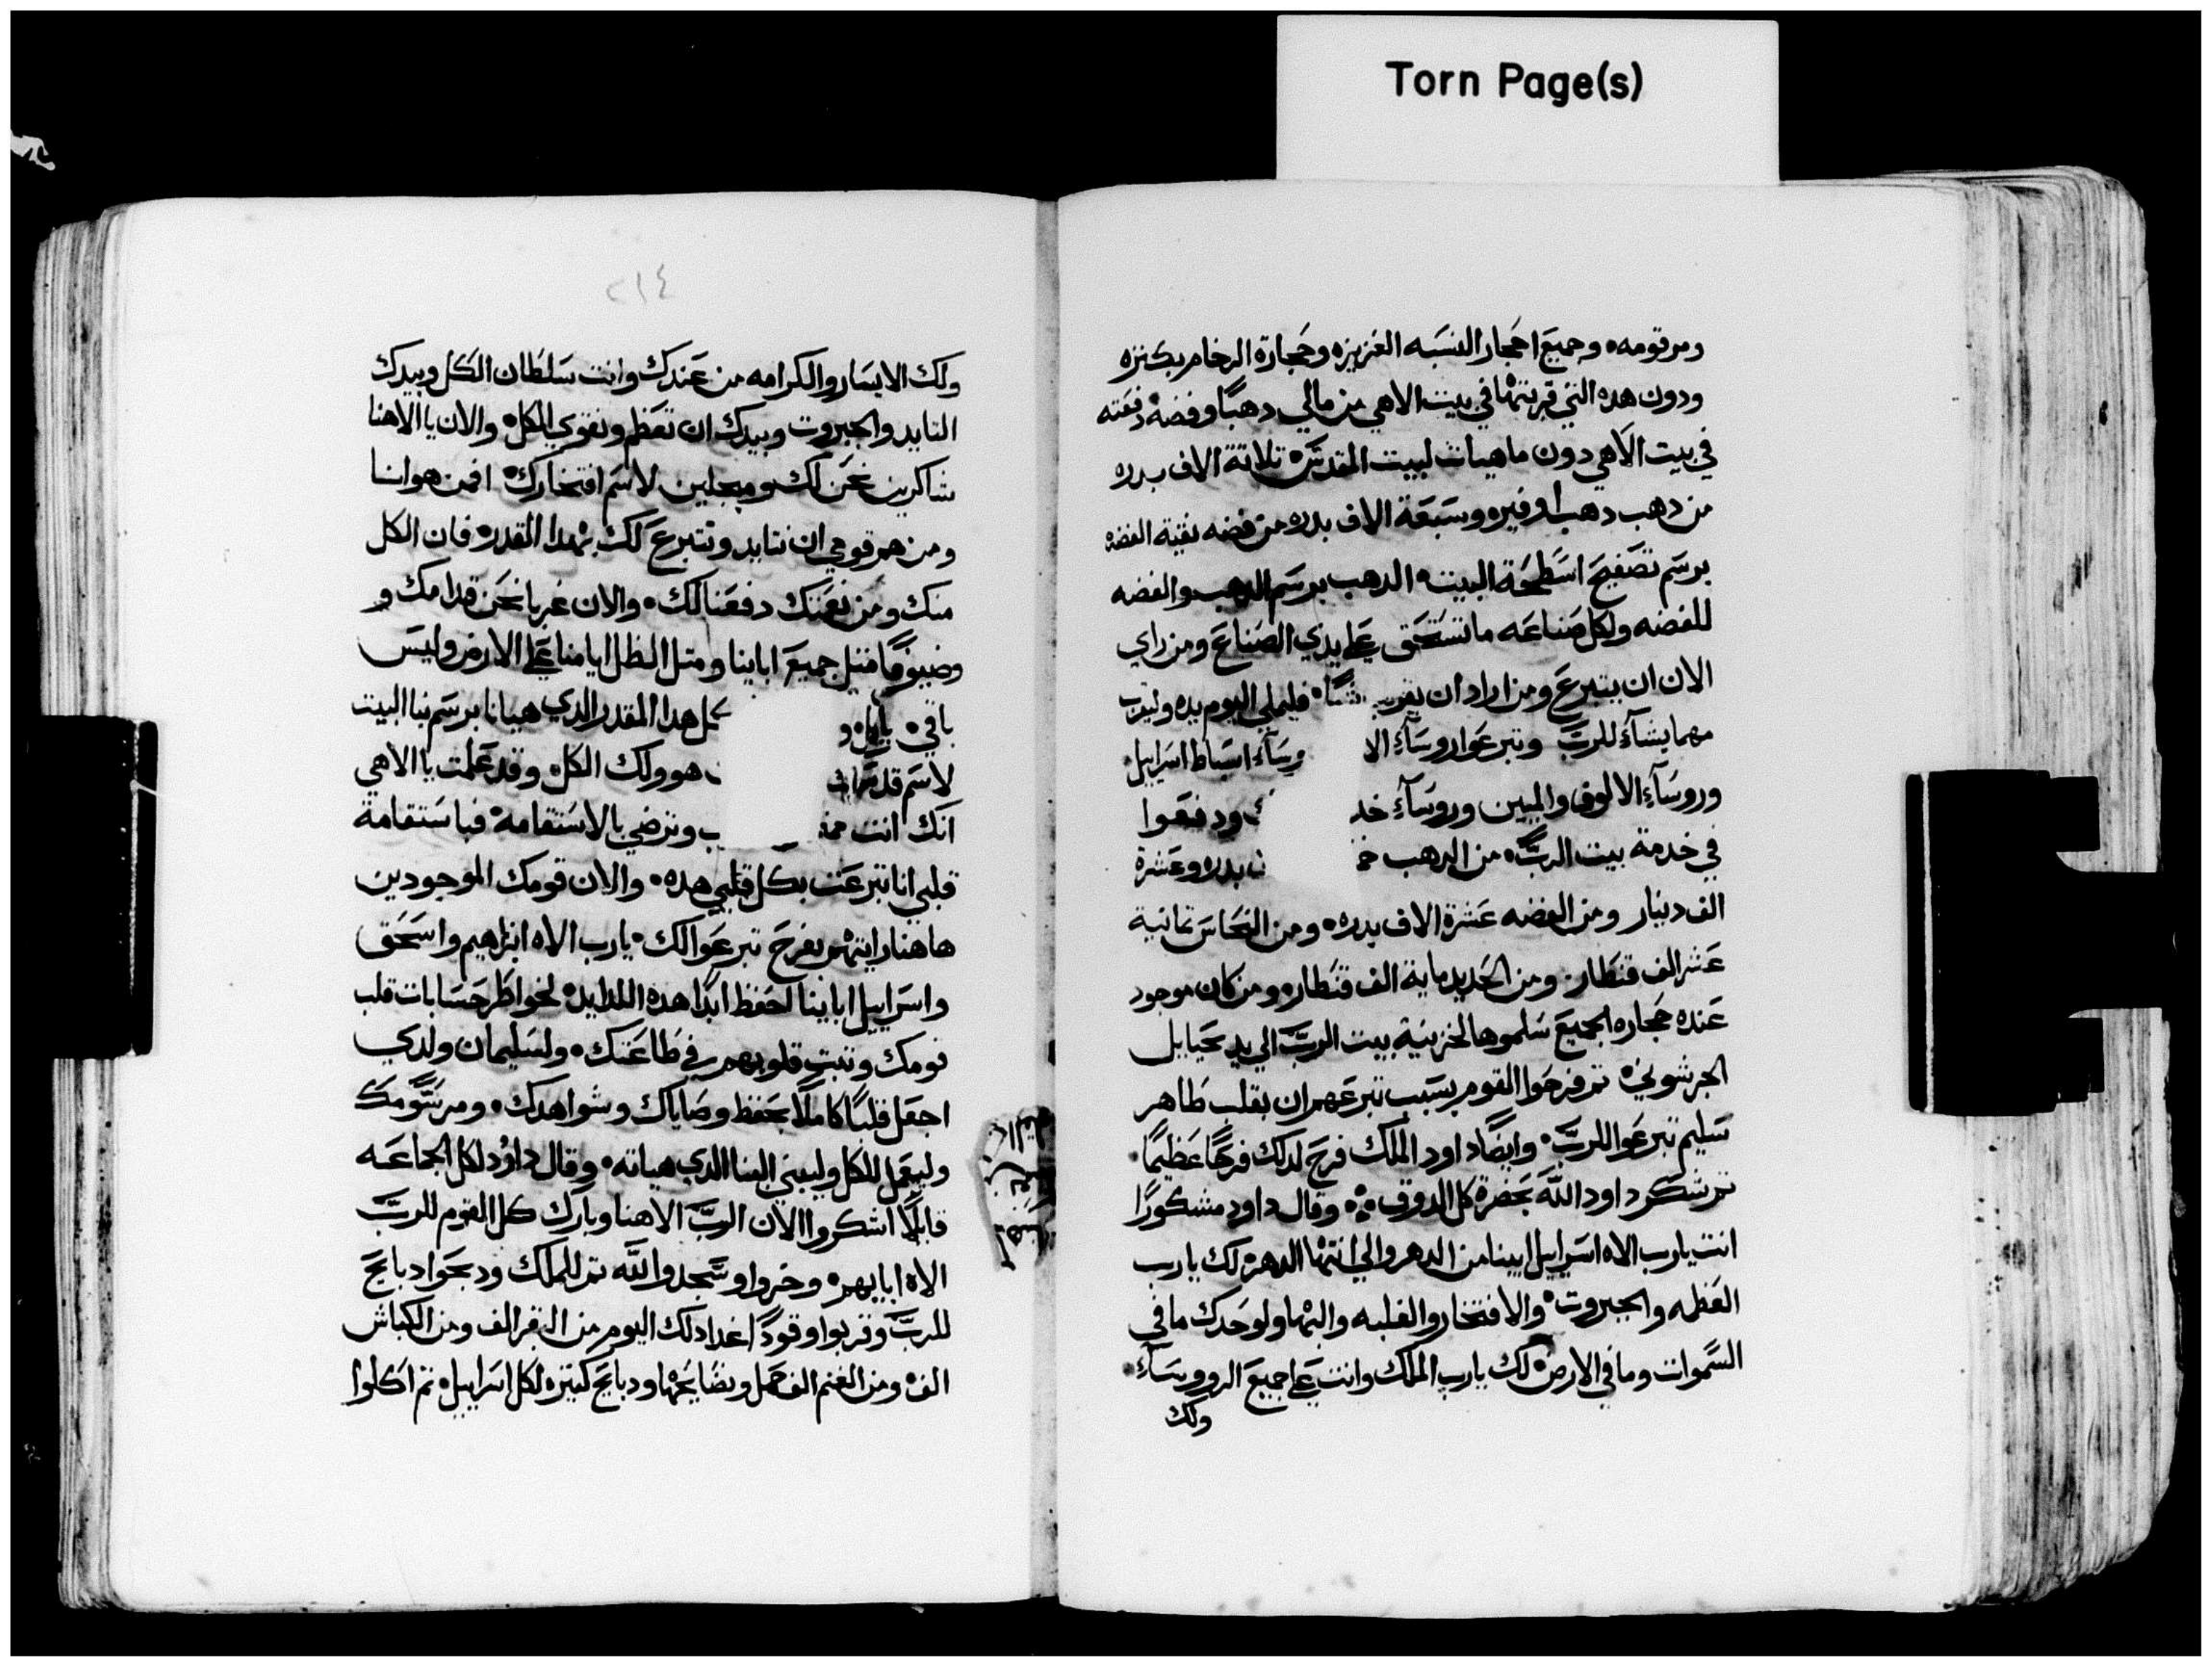 Torn Page(s)
ومرقومه وجميع احجار النسبه العزيزه وحجارة الرخام بكتره
ودون هده التي قربتها في بيت الاهي من مالي دهبًا وفضة دفعته
في بيت الاهي دون ماهيات لبيت المقدس تلاتة الاف بدره
من دهب دهب اوفيره وسبعة الاف بدره من فضه نقية الفضه
برسم تصفيح اسطحة البيت الدهب برسم الدهب والفضه
للفضه ولكل صناعه ماتستحق على يدي الصناع ومن راي
الان ان يتبرع ومن اراد ان يقرب شيًا فليملي اليوم يده وليقرب
مهما يشاء للرب وتبرعوا روساء الا روساء اسباط اسراييل
وروساء الالوف والميين وروساء خد ودفعوا
في خدمة بيت الرب من الدهب بدره وعشرة
الف دينار ومن الفضه عشرة الاف بدره ومن النحاس تمانية
عشر الف قنطار ومن الحديد ماية الف قنطاره ومن كان موجود
عنده حجاره الجميع سلموها لخزينة بيت الرب الي يد يحيايل
الجرشوني تم فرحوا القوم بسبب تبرعهم ان بقلب طاهر
سليم تبرعوا للرب وايضًا داود الملك فرح لدلك فرحًا عظيمًا
تم شكر داود الله بحضرة كل الدوق وقال داود مشكورًا
انت يارب الاه اسراييل ابينا من الدهر والي انتها الدهر لك يارب
العظمه والجبروت والافتخار والغلبه والبها ولوحدك مافي
السموات ومافي الارض لك يارب الملك وانت على جميع الروساء
ولك
٢١٤
ولك الايسار والكرامه من عندك وانت سلطان الكل وبيدك
التايد والجبروت وبيدك ان تعظم وتقوي الكل والان يا الاهنا
شاكرين نحن لك ومبجلين لاسم افتخارك افمن هو انا
ومن هم قومي ان نتايد ونتبرع لك بهدا القدر فان الكل
منك ومن نعمتك دفعنا لك والان غربا نحن قدامك و
وضيوفًا متل جميع اباينا ومتل الظل ايامنا على الارض وليس
باقي كل هدا المقدر الدي هيانا برسم بنا البيت
لاسم قدسك هو ولك الكل وقد علمت يا الاهي
انك انت وترضي بالاستقامة فباستقامة
قلبي انا تبرعت بكل قلبي هده والان قومك الموجودين
هاهنا رايتهم بفرح تبرعوا لك يارب الاه ابراهيم واسحق
واسراييل اباينا احفظ ابدًا هده اللدايد لخواطر حسابات قلب
قومك وتبت قلوبهم في طاعتك ولسليمان ولدي
اجعل قلبًا كاملًا بحفظ وصاياك وشواهدك ومرسومك
وليعمل للكل وليبني البنا الدي هياته وقال داود لكل الجماعه
قايلًا اشكروا الان الرب الاهنا وبارك كل القوم للرب
الاه ابايهم وخروا وسجدوا لله تم للملك ودبحوا دبايح
للرب وقربوا وقودًا اغدا دلك اليوم من البقر الف ومن الكباش
الف ومن الغنم الف حمل ونضايحها ودبايح كتيره لكل اسراييل تم اكلوا